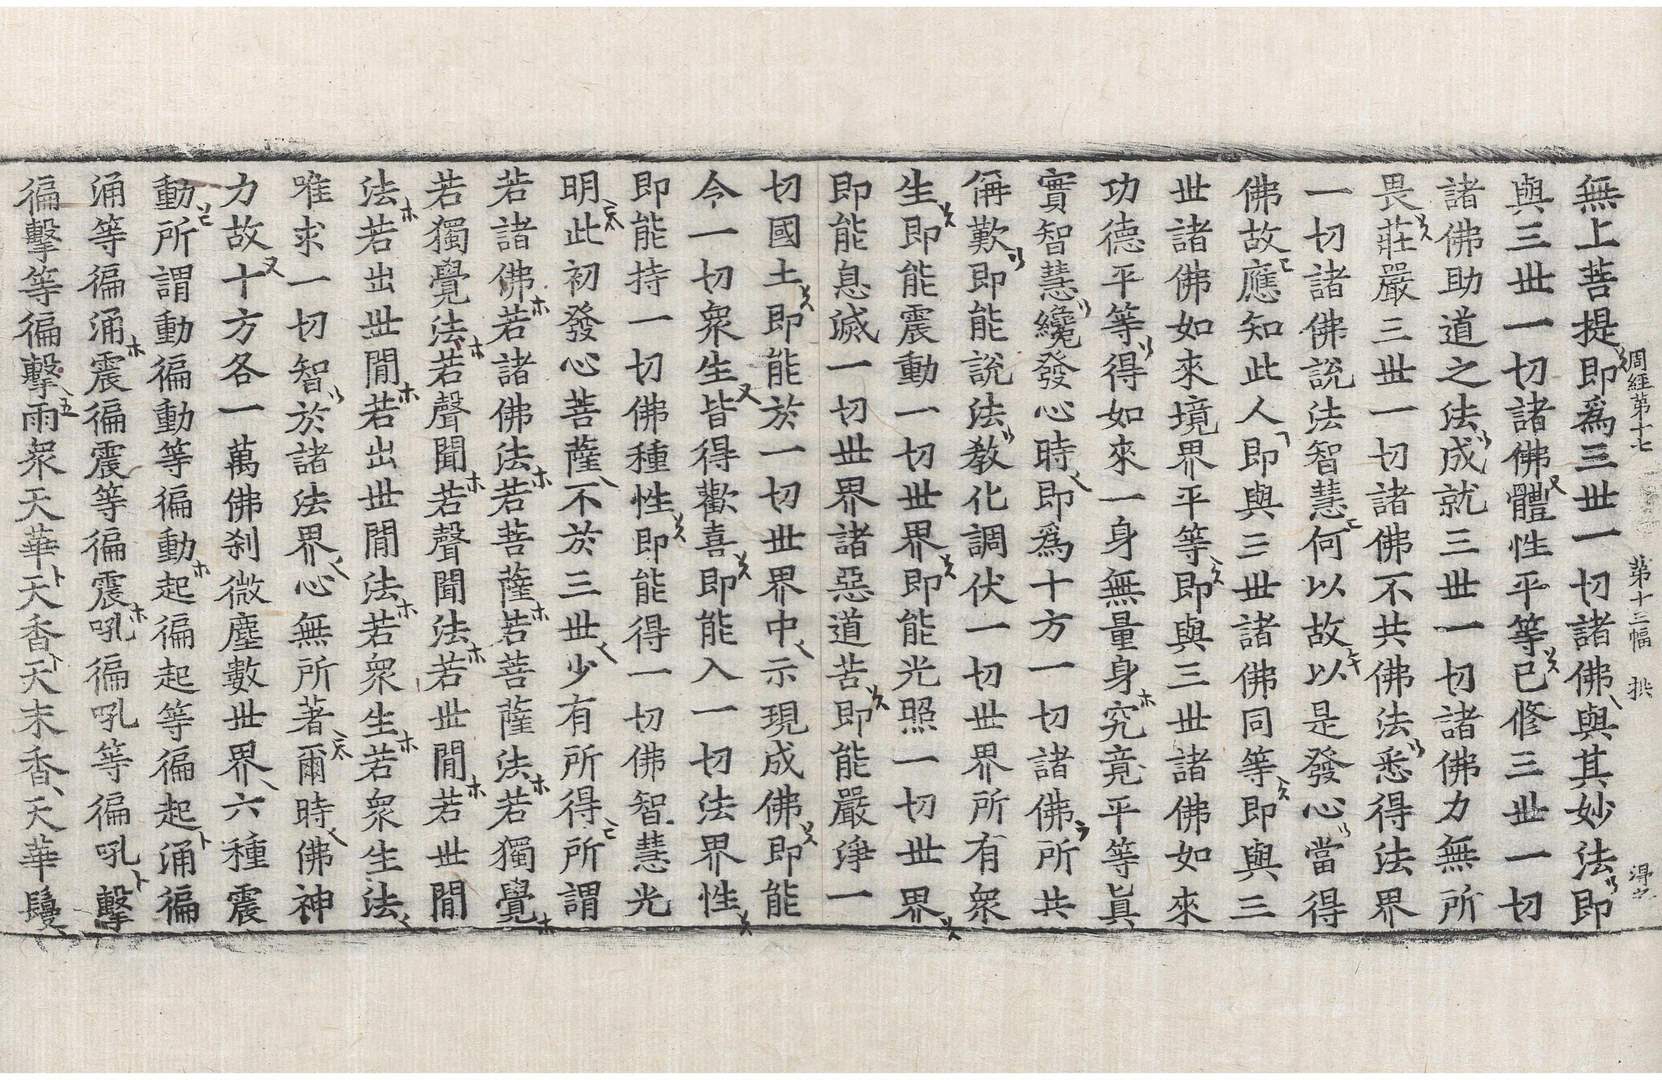 周經第十七 第十三幅
無上菩提即爲三世一切諸佛與其妙法即
與三世一切諸佛體性平等已修三世一切
諸佛助道之法成就三世一切諸佛力無所
畏莊嚴三世一切諸佛不共佛法悉得法界
一切諸佛說法智慧何以故以是發心當得
佛故應知此人即與三世諸佛同等即與三
世諸佛如來境界平等即與三世諸佛如來
功德平等得如來一身無量身究竟平等眞
實智慧纔發心時即爲十方一切諸佛所共
稱歎即能說法教化調伏一切世界所有衆
生即能震動一切世界即能光照一切世界
即能息滅一切世界諸惡道苦即能嚴淨一
切國土即能於一切世界中示現成佛即能
令一切衆生皆得歡喜即能入一切法界性
即能持一切佛種性即能得一切佛智慧光
明此初發心菩薩不於三世少有所得所謂
若諸佛若諸佛法若菩薩若菩薩法若獨覺
若獨覺法若聲聞若聲聞法若世間若世間
法若出世間若出世間法若衆生若衆生法
唯求一切智於諸法界心無所著爾時佛神
力故十方各一萬佛刹微塵數世界六種震
動所謂動徧動等徧動起徧起等徧起涌徧
涌等徧涌震徧震等徧震吼徧吼等徧吼擊
徧擊等徧擊雨衆天華天香天末香天華鬘